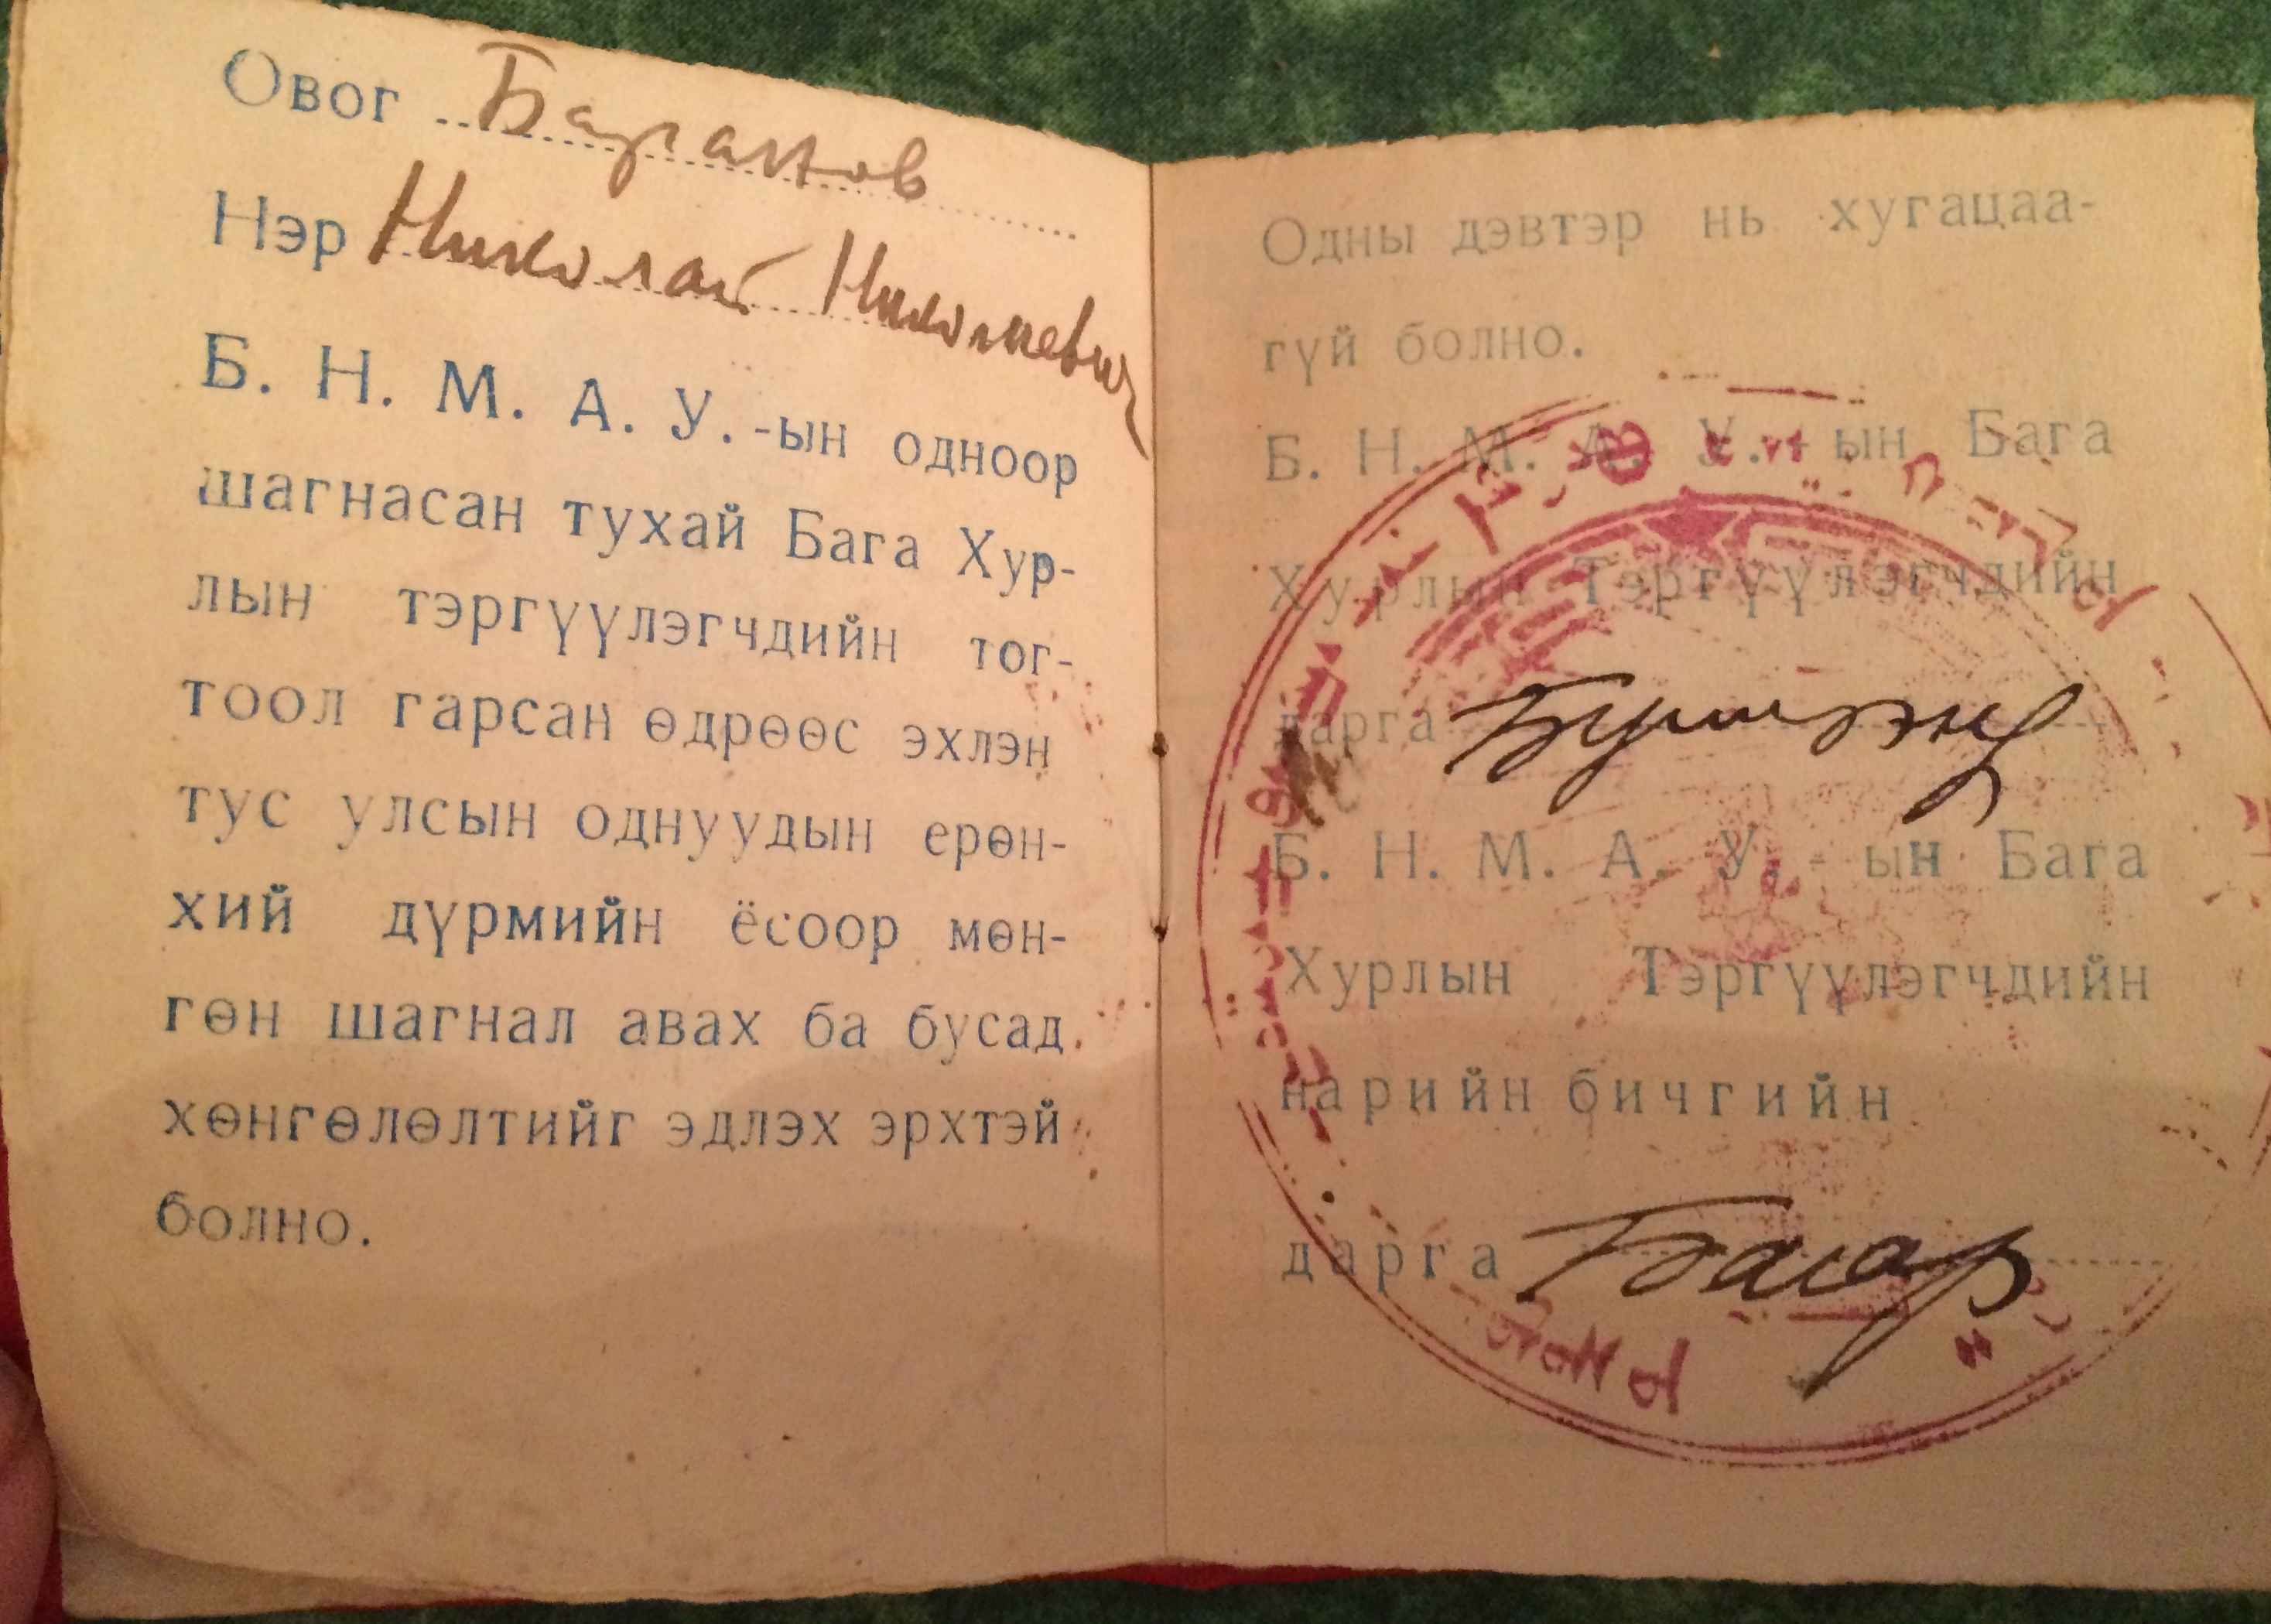 Овог Баранов
Нэр Николай Николаевич
Б. Н. М. А. У.-ын одноор
шагнасан тухай Бага Хур-
лын тэргүүлэгчдийн тог-
тоол гарсан өдрөөс эхлэн
тус улсын однуудын ерөн-
хий дүрмийн ёсоор мөн-
гөн шагнал авах ба бусад
хөнгөлөлтийг эдлэх эрхтэй
болно.
Одны дэвтэр нь хугацаа-
гүй болно.
Б. Н. М. А. У.-ын Бага
Хурлын Тэргүүлэгчдийн
дарга
Б. Н. М. А. У.-ын Бага
Хурлын Тэргүүлэгчдийн
нарийн бичгийн
дарга